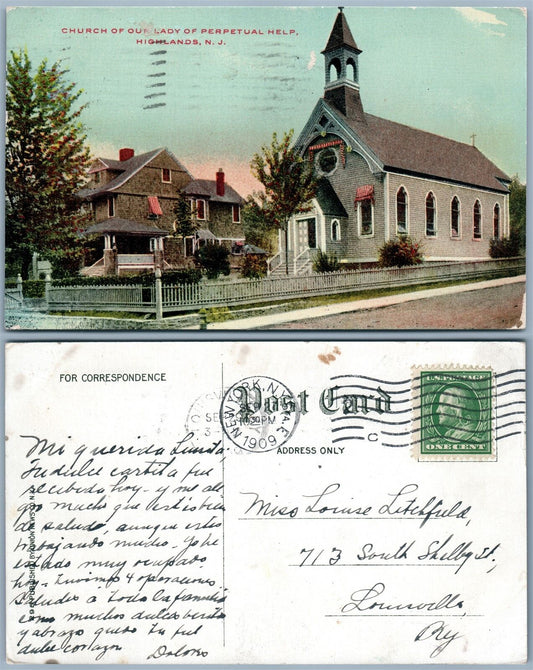 CHURCH OF OUR LADY OF PERPETUAL HELP,
HIGHLANDS, N. J.
FOR CORRESPONDENCE
Post Card
ADDRESS ONLY
NEW YORK, N.Y. STA. E
10 30 PM
1909
C
U.S. POSTAGE
ONE CENT
Mi querida Luisita
Tu dulce cartita fue
recibida hoy - y me ale
gro mucho que estés bien
de salud, aunque estés
trabajando mucho. Yo he
estado muy ocupado
hoy - Tuvimos 4 operaciones.
Saludes a toda la familia
como muchos dulces besitos
y abrazo quiero tu fiel
dulce corazon
Dolores
Miss Louise Litchfield,
713 South Shelby St,
Louisville,
Ky